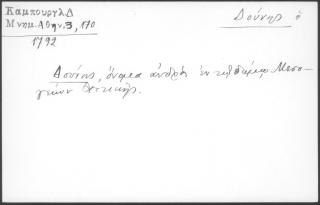 Καμπουργλ Δ
Μνημ. Αθην. 3, 170
1792
Δούνης ὁ
Δούνης, ὄνομα ἀνδρὸς ἐν τῷ δήμῳ Μεσο-
γείων Ἀττικῆς.